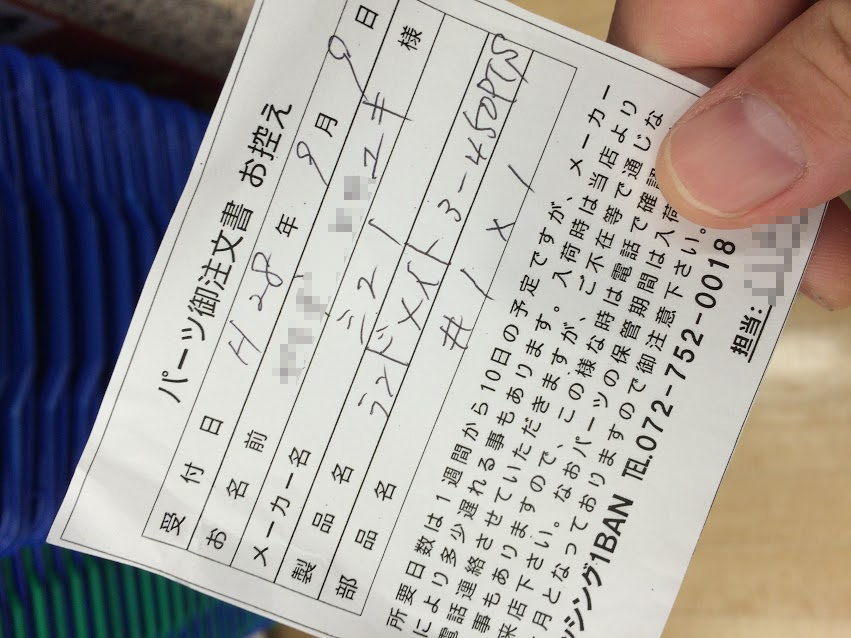 パーツ御注文書 お控え
受付日 H28年9月9日
お名前 ユキ 様
メーカー名
製品名 ランドメイト3-450PCS
部品名 #1 × 1
所要日数は1週間から10日の予定ですが、メーカー
により多少遅れる事もあります。入荷時は当店より
電話連絡させていただきますが、ご不在等で通じな
事もありますので、この様な時は電話で確認
来店下さい。なおパーツの保管期間は入荷
月となっておりますので御注意下さい。
ッシング1BAN TEL.072-752-0018
担当: